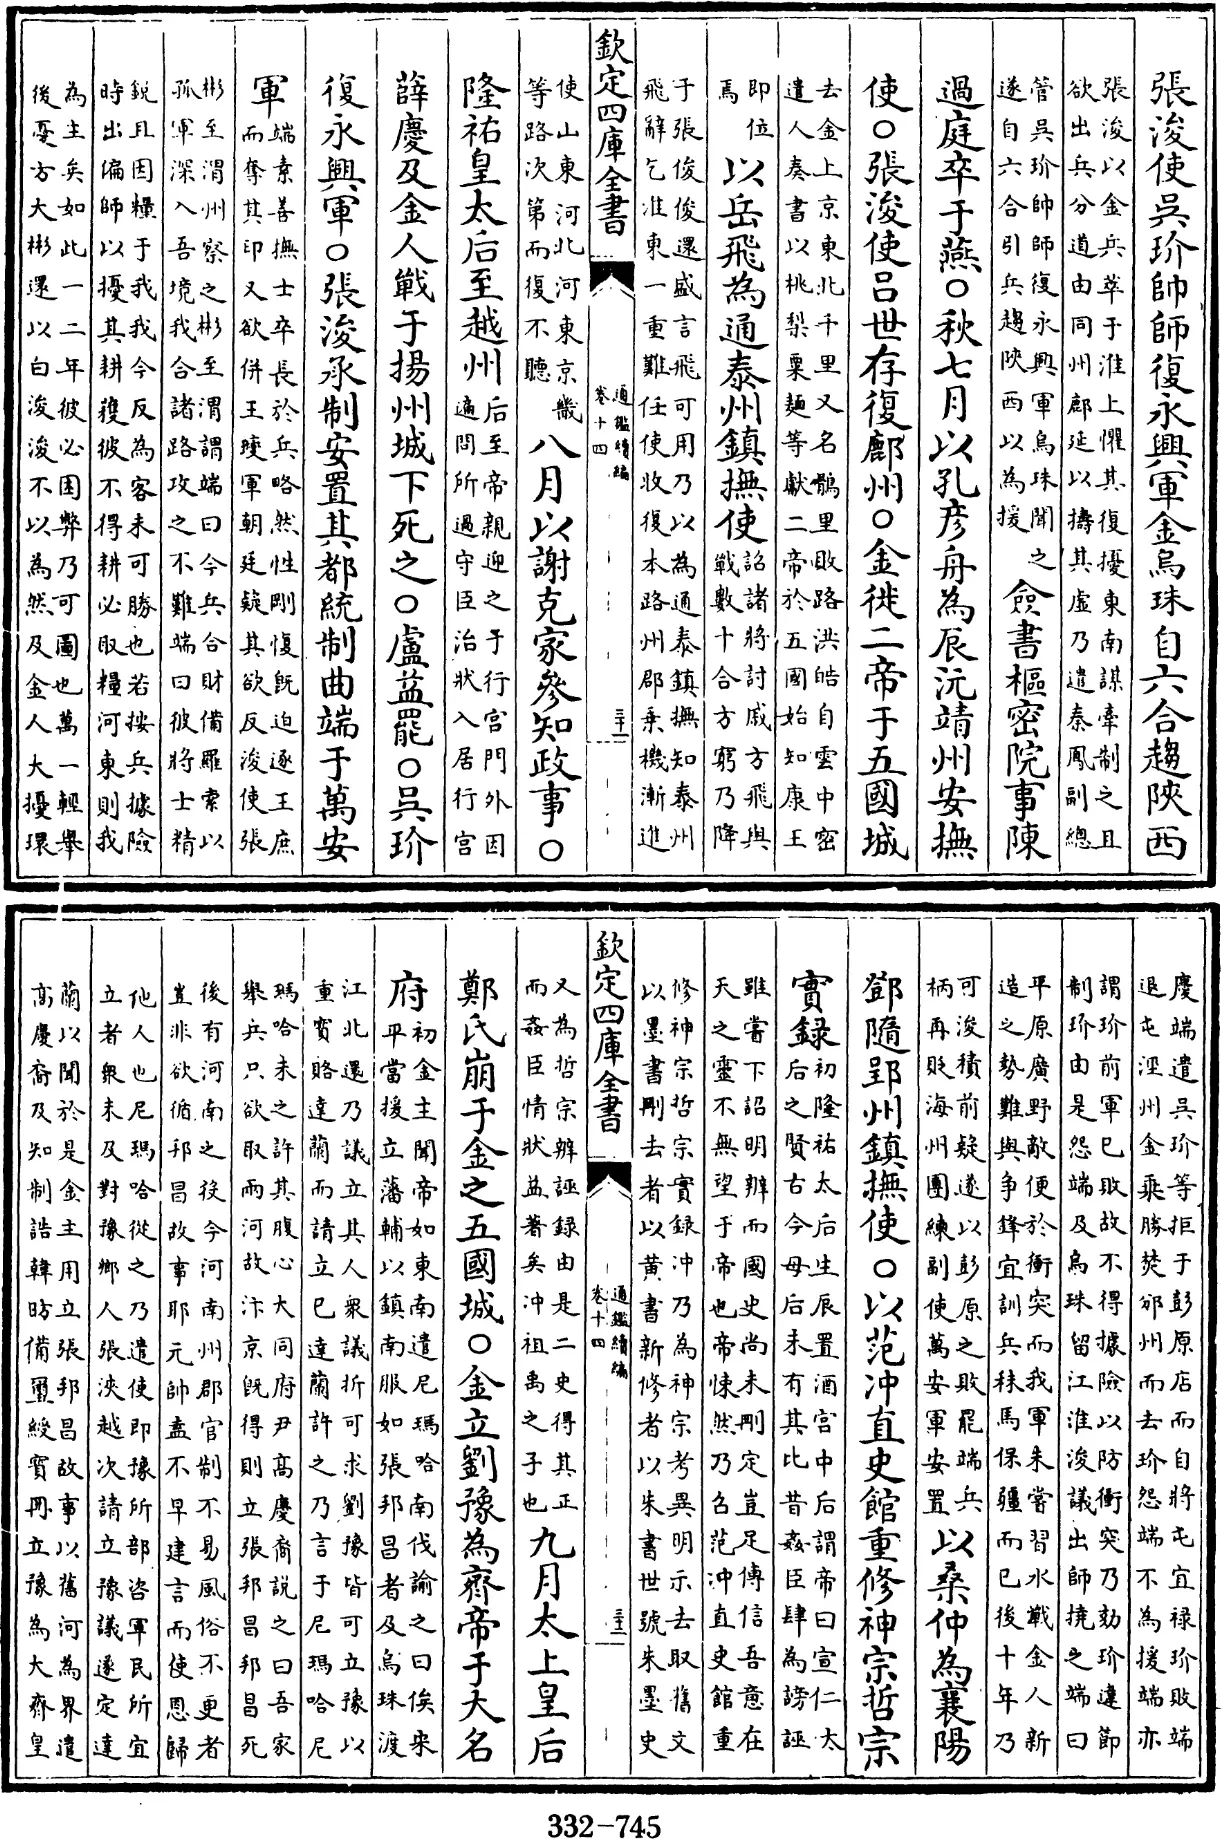 張浚使吳玠帥師復永興軍金烏珠自六合趨陜西
張浚以金兵萃于淮上懼其復擾東南謀牽制之且
欲出兵分道由同州鄜延以擣其虛乃遣秦鳳副總
管吳玠帥師復永興軍烏珠聞之
遂自六合引兵趨陜西以為援
僉書樞密院事陳
過庭卒于燕○秋七月以孔彥舟為辰沅靖州安撫
使○張浚使呂世存復鄜州○金徙二帝于五國城
去金上京東北千里又名鶻里路洪皓自雲中密
遣人奏書以桃梨粟麵等獻二帝於五國始知康王
即位
焉
以岳飛為通泰州鎮撫使
詔諸將討戚方飛與
戰數十合方窮乃降
于張俊俊還盛言飛可用乃以為通泰鎮撫知泰州
飛辭乞淮東一重難任使收復本路州郡乗機漸進
欽定四庫全書
通鑑續編
卷十四
三十一
使山東河北河東京畿
等路次第而復不聽
八月以謝克家參知政事○
隆祐皇太后至越州
后至帝親迎之于行宮門外因
遍問所過守臣治狀入居行宮
薛慶及金人戰于揚州城下死之○盧益罷○吳玠
復永興軍○張浚承制安置其都統制曲端于萬安
軍
端素善撫士卒長於兵略然性剛愎既迫逐王庶
而奪其印又欲併王軍朝廷疑其欲反浚使張
彬至渭州察之彬至渭謂端曰今兵合財備羅索以
孤軍深入吾境我合諸路攻之不難端曰彼將士精
銳且因糧于我我今反為客未可勝也若按兵據險
時出偏師以擾其耕穫彼不得耕必取糧河東則我
為主矣如此一二年彼必困弊乃可圖也萬一輕舉
後憂方大彬還以白浚浚不以為然及金人大擾環
慶端遣吳玠等拒于彭原店而自將屯宜禄玠敗端
退屯涇州金乘勝焚邠州而去玠怨端不為援端亦
謂玠前軍已敗故不得據險以防衝突乃劾玠違節
制玠由是怨端及烏珠留江淮浚議出師撓之端曰
平原廣野敵便於衝突而我軍未嘗習水戰金人新
造之勢難與爭鋒宜訓兵秣馬保疆而已後十年乃
可浚積前疑遂以彭原之敗罷端兵
柄再貶海州團練副使萬安軍安置
以桑仲為襄陽
鄧隨郢州鎮撫使○以范冲直史館重修神宗哲宗
實録
初隆祐太后生辰置酒宫中后謂帝曰宣仁太
后之賢古今母后未有其比昔姦臣肆為謗誣
雖嘗下詔明辨而國史尚未刪定豈足傳信吾意在
天之靈不無望于帝也帝悚然乃召范冲直史館重
修神宗哲宗實録冲乃為神宗考異明示去取舊文
以墨書刪去者以黄書新修者以朱書世號朱墨史
欽定四庫全書
通鑑續編
卷十四
三十二
又為哲宗辨誣録由是二史得其正
而姦臣情狀益著矣冲祖禹之子也
九月太上皇后
鄭氏崩于金之五國城○金立劉豫為齊帝于大名
府
初金主聞帝如東南遣尼瑪哈南伐諭之曰俟來
平當援立藩輔以鎮南服如張邦昌者及烏珠渡
江北還乃議立其人衆議折可求劉豫皆可立豫以
重寳賂達蘭而請立已達蘭許之乃言于尼瑪哈尼
瑪哈未之許其腹心大同府尹高慶裔說之曰吾家
舉兵只欲取兩河故汴京既得則立張邦昌邦昌死
後有河南之役今河南州郡官制不易風俗不更者
豈非欲循邦昌故事耶元帥盍不早建言而使恩歸
他人也尼瑪哈從之乃遣使即豫所部咨軍民所宜
立者衆未及對豫鄉人張浹越次請立豫議遂定達
蘭以聞於是金主用立張邦昌故事以舊河為界遣
高慶裔及知制誥韓昉備璽綬寳冊立豫為大齊皇
332-745